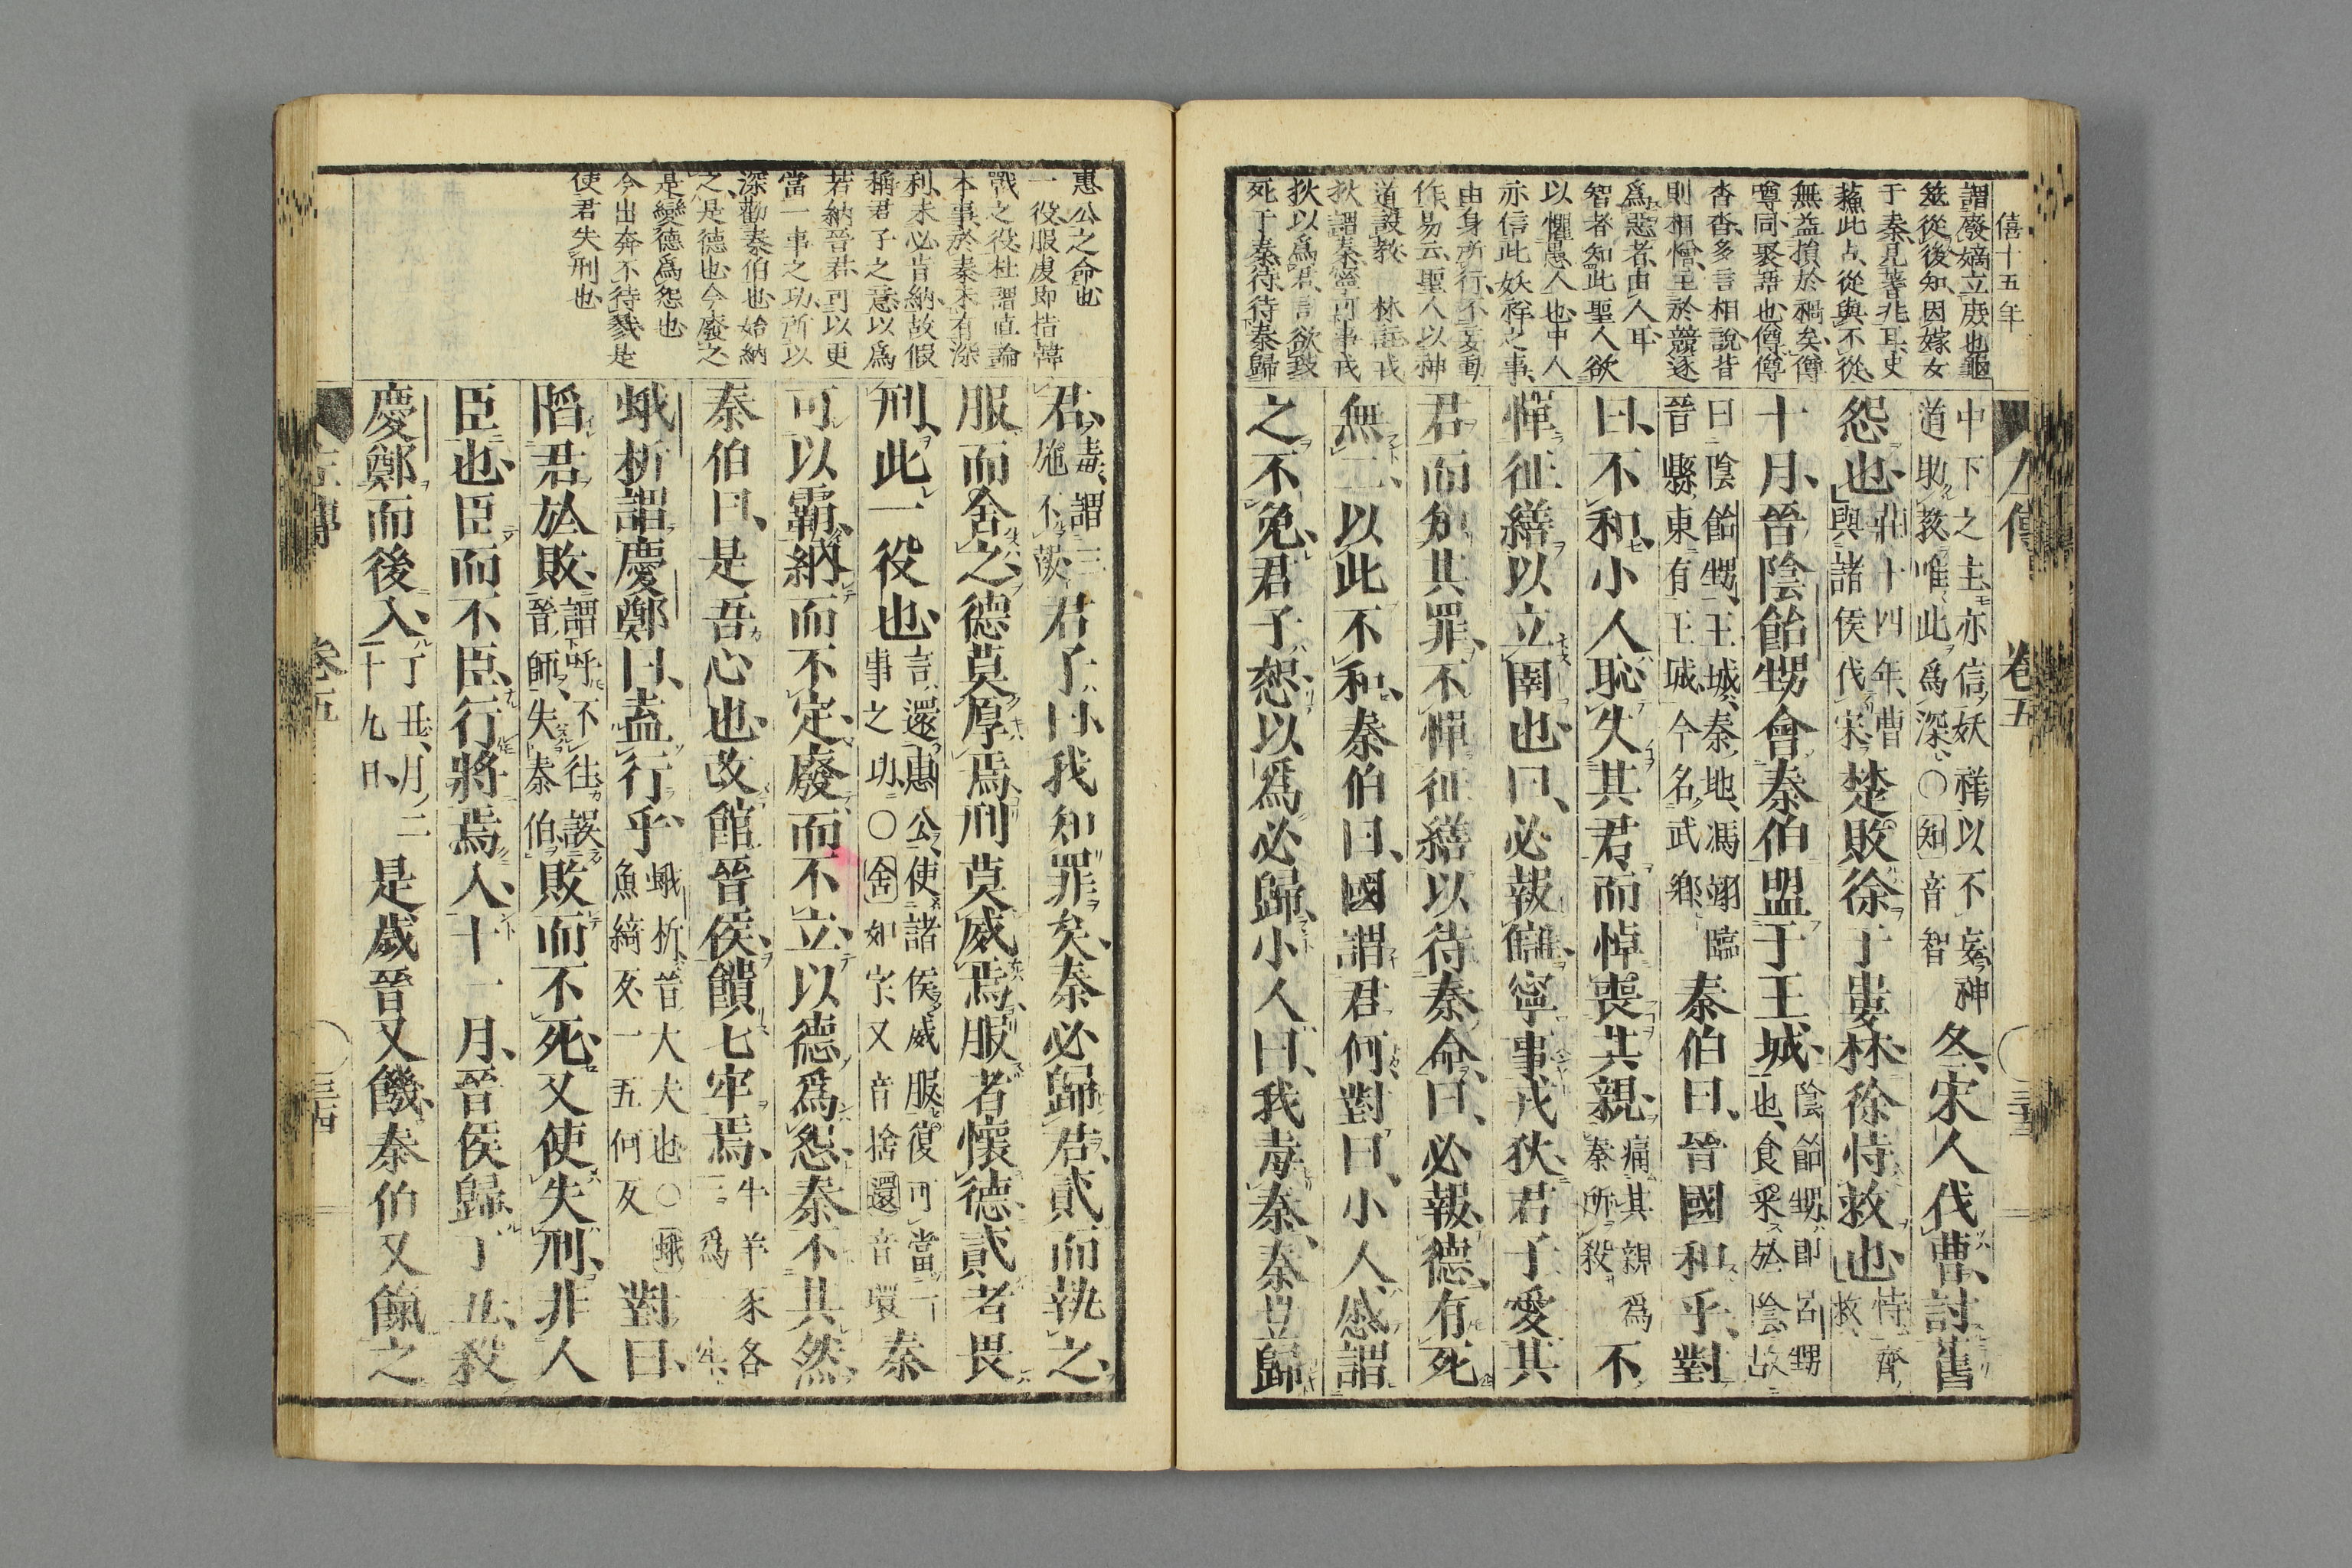 僖十五年
謂廢嫡立庶也龜
筮從後知因嫁女
于秦見蓍兆耳史
蘇此占從與不從
無益損於禍矣僔
噂同聚語也僔僔
沓沓多言相說背
則相憎主於競逐
為惡者由人耳
智者知此聖人欲
以懼愚人也中人
亦信此妖祥之事
由身所行不妄動
作易云聖人以神
道設教 林註戎
狄謂秦寧何事戎
狄以爲君言欲致
死于秦待待秦歸
中下之主亦信妖祥以不妄神
道助教唯此爲深〇知音智
冬宋人伐曹討舊
怨也
莊十四年曹
與諸侯伐宋
楚敗徐于婁林徐恃救也
恃齊
救
十月晉陰飴甥會秦伯盟于王城
陰飴甥即呂甥
也食采於陰故
曰陰飴甥王城秦地馮翊臨
晉縣東有王城今名武鄉
秦伯曰晉國和乎對
曰不和小人恥失其君而悼喪其親
痛其親爲
秦所殺
不
憚征繕以立圉也曰必報讎寧事戎狄君子愛其
君而知其罪不憚征繕以待秦命曰必報德有死
無二以此不和秦伯曰國謂君何對曰小人慼謂
之不免君子恕以爲必歸小人曰我毒秦秦豈歸
惠公之命也
一役服虔即指韓
戰之役杜謂直論
本事於秦未有深
利未必肯納故假
稱君子之意以爲
若納晉君可以更
當一事之功所以
深勸秦伯也始納
之是德也今廢之
是變德爲怨也
今出奔不待戮是
使君失刑也
君
毒謂三
施不茷
君子曰我知罪矣秦必歸君貳而執之
服而舍之德莫厚焉刑莫威焉服者懷德貳者畏
刑此一役也
言還惠公使諸侯威服復可當一
事之功〇舍如字又音捨還音環
秦
可以霸納而不定廢而不立以德爲怨秦不其然
秦伯曰是吾心也改館晉侯饋七牢焉
牛羊豕各
一爲一牢
蛾析謂慶鄭曰盍行乎
蛾析晉大夫也〇蛾
魚綺反一五何反
對曰
陷君於敗
謂呼不往誤
晉師失秦伯
敗而不死又使失刑非人
臣也臣而不臣行將焉入十一月晉侯歸丁丑殺
慶鄭而後入
丁丑月二
十九日
是歲晉又饑秦伯又餼之
左傳 卷五 三四